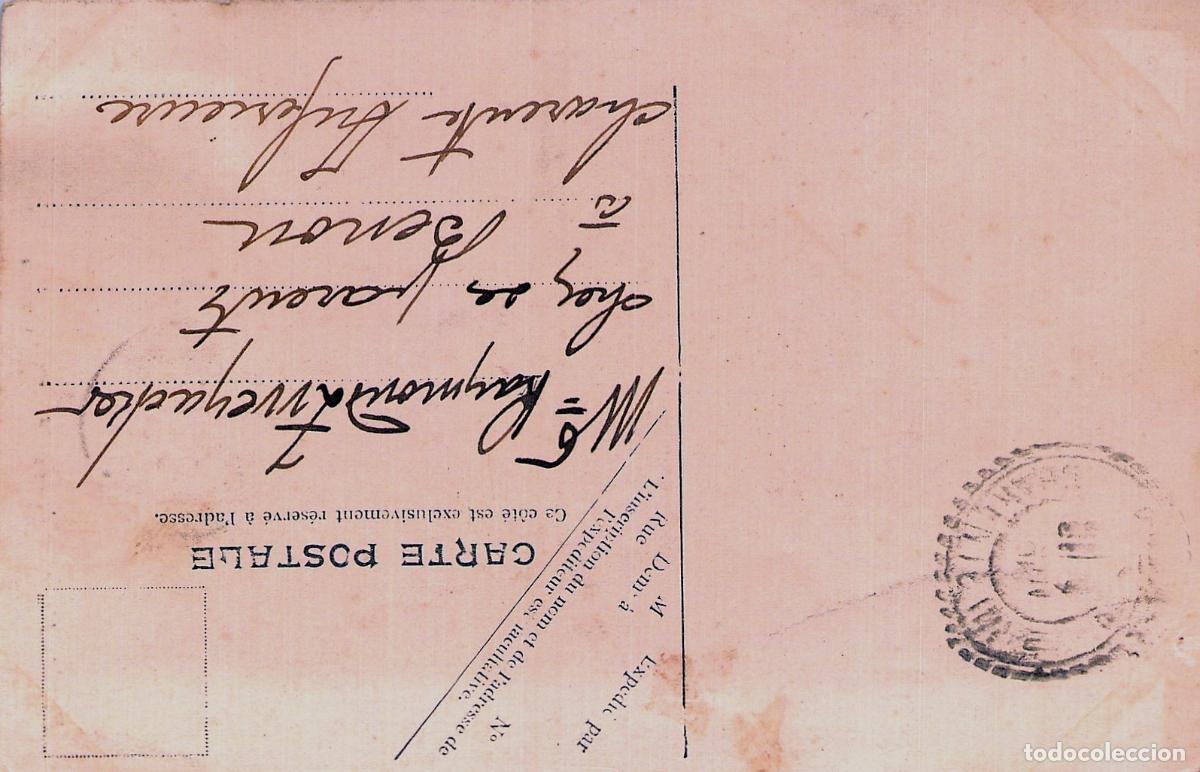 CARTE POSTALE
Ce côté est exclusivement réservé à l'adresse.
Expédié par
M
Demt à
Rue Nº
L'inscription du nom et de l'adresse de
l'expéditeur est facultative.
Raymond
chez se parent
à Benon
Charente Inférieure
todocoleccion